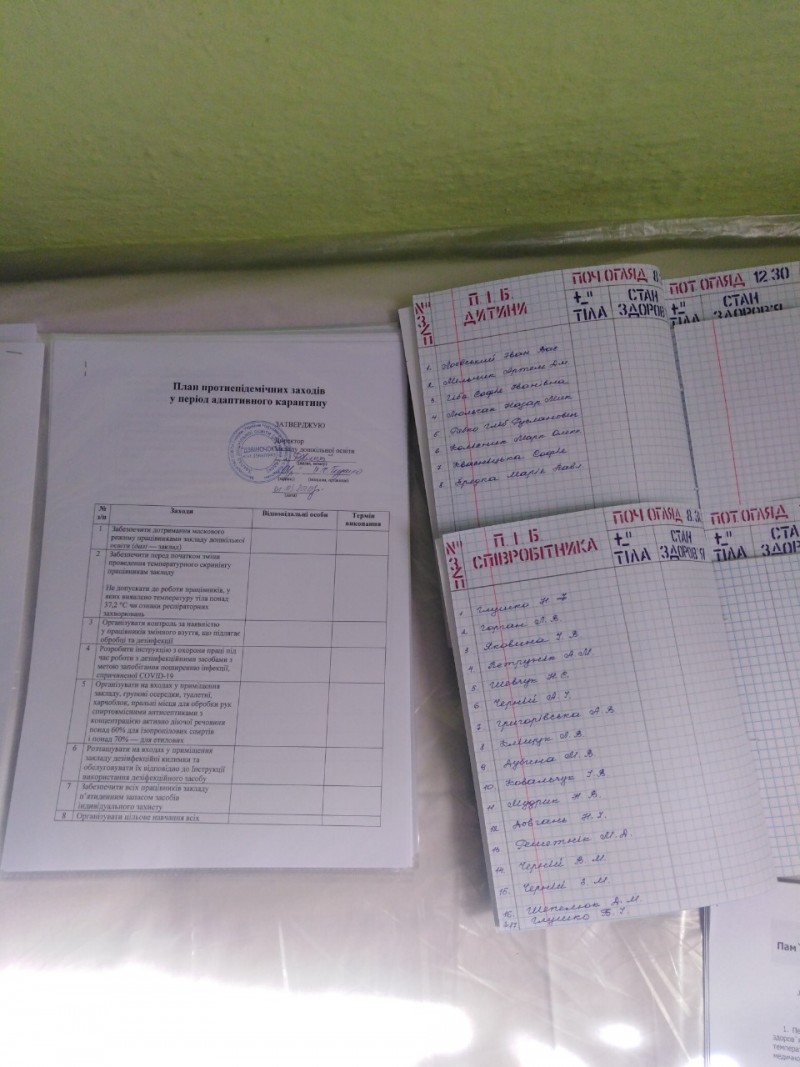 План протиепідемічних заходів
у період адаптивного карантину
ЗАТВЕРДЖУЮ
Директор
закладу дошкільної освіти
№ з/п Заходи Відповідальні особи Термін виконання
1 Забезпечити дотримання маскового
режиму працівниками закладу дошкільної
освіти (далі — заклад)
2 Забезпечити перед початком зміни
проведення температурного скринінгу
працівникам закладу
Не допускати до роботи працівників, у
яких виявлено температуру тіла понад
37,2 °С чи ознаки респіраторних
захворювань
3 Організувати контроль за наявністю
у працівників змінного взуття, що підлягає
обробці та дезінфекції
4 Розробити інструкцію з охорони праці під
час роботи з дезінфекційними засобами з
метою запобігання поширенню інфекції,
спричиненої COVID-19
5 Організувати на входах у приміщення
закладу, групові осередки, туалетні,
харчоблок, пральні місця для обробки рук
спиртовмісними антисептиками з
концентрацією активно діючої речовини
понад 60% для ізопропілових спиртів
і понад 70% — для етилових
6 Розташувати на входах у приміщення
закладу дезінфекційні килимки та
обслуговувати їх відповідно до Інструкції
використання дезінфекційного засобу
7 Забезпечити всіх працівників закладу
п'ятиденним запасом засобів
індивідуального захисту
8 Організувати цільове навчання всіх
№ З/П П.І.Б. ДИТИНИ ПОЧ ОГЛЯД 8 ПОТ ОГЛЯД 12.30
t° ТІЛА СТАН ЗДОРОВ'Я t° СТАН ЗДОРОВ'Я
1. Іван
2. Мельник Артем
3. Софія Іванівна
4. Назар
5. Гліб
6. Марк
7. Квасницька Софія
8. Марія
№ З/П П.І.Б. СПІВРОБІТНИКА ПОЧ ОГЛЯД 8.3 ПОТ ОГЛЯД
t° ТІЛА СТАН ЗДОРОВ'Я t° ТІЛА СТАН
1. Глушко Н
2. Горган Л. В.
3. Яковина І. В
4. А М
5. Шевчук Н. С.
6. Черній А. І.
7. Григорівська А В
8. Л. В.
9. Дубина М. В
10. Ковальчук І. В
11. Мудрик Н. В.
12. Довгань Н. І.
13. Решетнік М. Д.
14. Черній В М.
15. Черній М.
16. Шепелюк Д. М.
17. Глушко В. І.
Пам
1. Пе
здоров'я
температ
медично